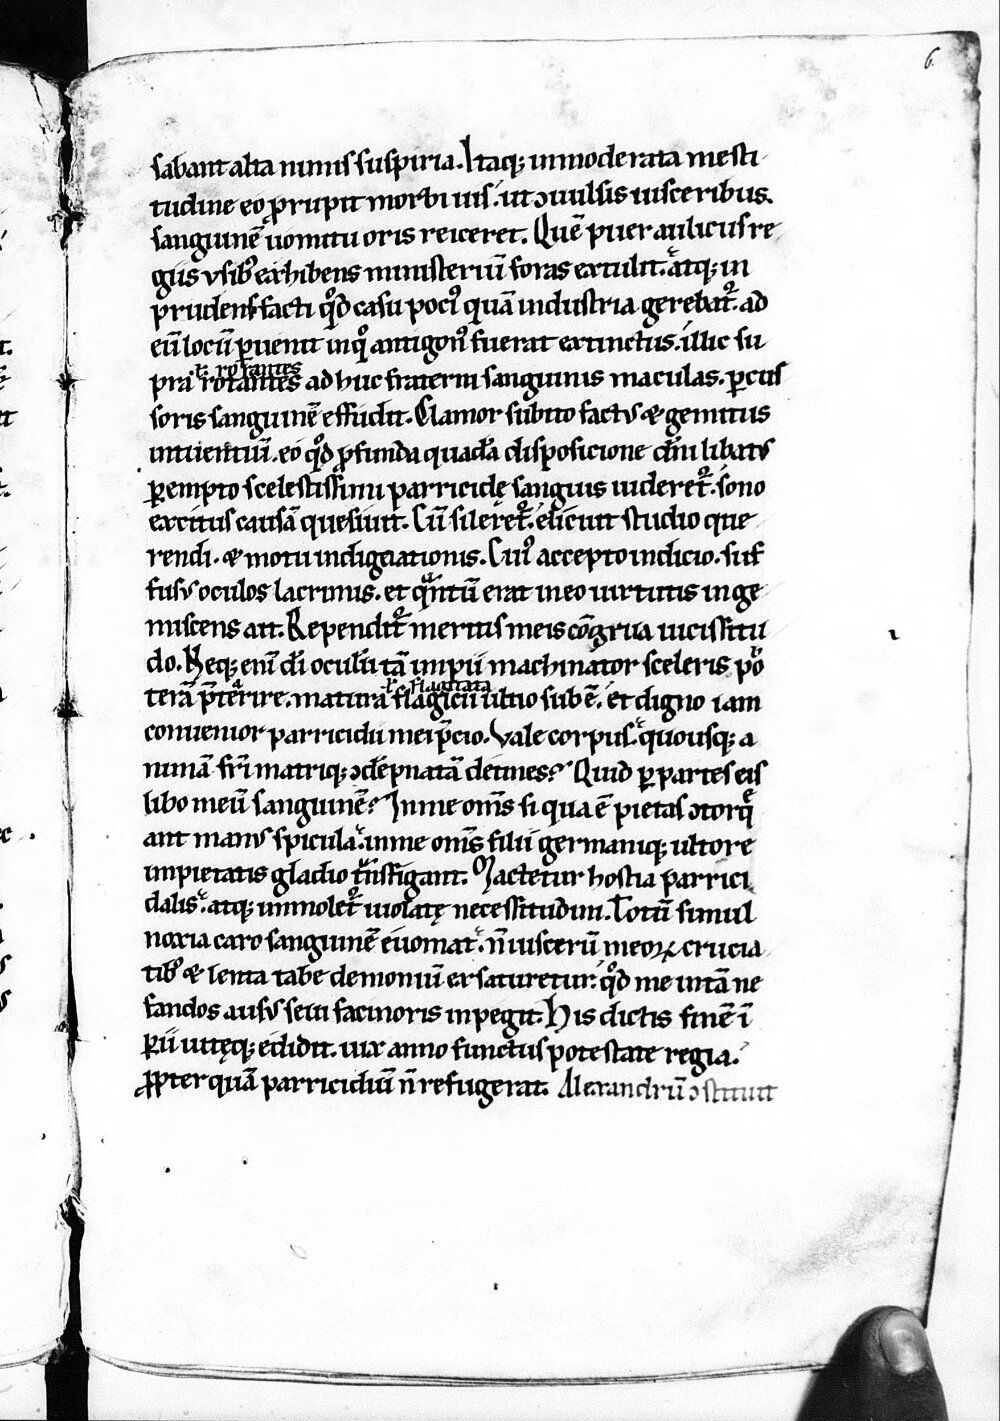 6
sabant alta nimis suspiria. Itaq; inmoderata mesti
tudine eo p̱rupit morbi uis. ut ɔuulsis uisceribus.
sanguinē uomitu oris reiceret. Quē puer aulicus re
giis vsibꝰ exhibens ministeriū foras extulit. atq; in
prudens facti qͦd casu pociꝰ quā industria gerebat᷑. ad
eū locū ꝑuenit inqͦ antigonꝰ fuerat extinctus. illic su
ł rorantes
pra rotantes ad huc fraterni sanguinis maculas. ꝑcus
soris sanguinē effudit. Clamor subito factꝰ & gemitus
intuentiū. eo qͦd ꝓfunda quadā disposicione dn̄i libatꝰ
ꝑempto scelestissimi parricidę sanguis uideret᷑. sono
excitus causā quesiuit. Cū sileret᷑. elicuit studio que
rendi. & motu indignationis. Cuiꝰ accepto indicio. suf
fusꝰ oculos lacrimis. et qͣntū erat in eo uirtutis inge
miscens ait. Rependit᷑ meritis meis cōgrua uicissitu
do. Neq; enī di oculū tā impii machinator sceleris po
ł flagitata
terā p̄terire. matura flagicii ultio sub ē. et digno iam
conuenior parricidii mei p̄cio. Vale corpus. quousq; a
nimā fr̄i matriq; ɔdēpnatā detines? Quid ꝑ partes eis
libo meū sanguinē? In me om̄s si qua ē pietas ɔtorq̄
ant manꝰ spicula. in me om̄s filii germaniq; ultore
impietatis gladio tͣnsfigant. Mactetur hostia parrici
dalis. atq; immolet᷑ uiolatę necessitudini. Totū simul
noxia caro sanguinē euomat. n̄ uiscerū meoꝝ crucia
tibꝰ & lenta tabe demoniū exsaturetur. qͦd me in tā ne
fandos ausꝰ seui facinoris inpegit. His dictis finē ī
ꝑii uitęq; edidit. uix anno functus potestate regia.
ꝓpter quā parricidiū n̄ refugerat. Alexandrū ɔstituit